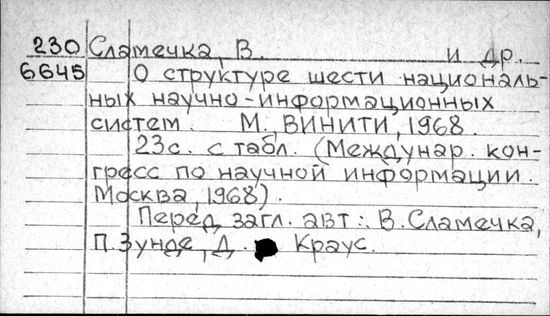 230 Сламечка, В. и др.
6645 О структуре шести националь-
ных научно-информационных
систем. М., ВИНИТИ, 1968.
23с. с табл. (Междунар. кон-
гресс по научной информации.
Москва, 1968).
Перед загл. авт.: В. Сламечка,
П. Зунде, Д. Краус.